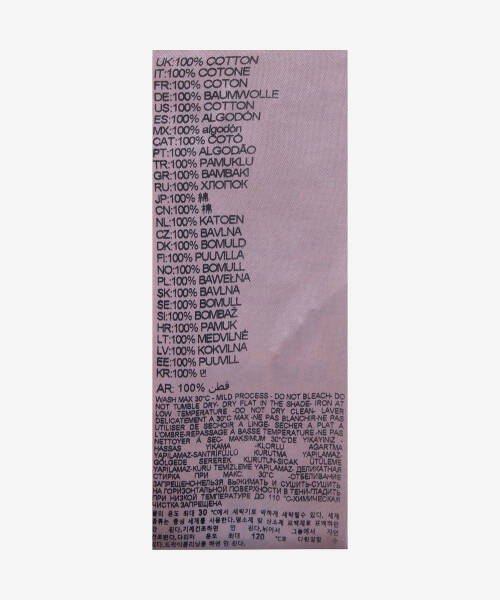 UK:100% COTTON
IT:100% COTONE
FR:100% COTON
DE:100% BAUMWOLLE
US:100% COTTON
ES:100% ALGODÓN
MX:100% algodón
CAT:100% COTÓ
PT:100% ALGODÃO
TR:100% PAMUKLU
GR:100% BAMBAKI
RU:100% ХЛОПОК
JP:100% 綿
CN:100% 棉
NL:100% KATOEN
CZ:100% BAVLNA
DK:100% BOMULD
FI:100% PUUVILLA
NO:100% BOMULL
PL:100% BAWEŁNA
SK:100% BAVLNA
SE:100% BOMULL
SI:100% BOMBAŽ
HR:100% PAMUK
LT:100% MEDVILNĖ
LV:100% KOKVILNA
EE:100% PUUVILL
KR:100% 면
AR: 100% قطن
WASH MAX 30°C - MILD PROCESS - DO NOT BLEACH- DO
NOT TUMBLE DRY- DRY FLAT IN THE SHADE- IRON AT
LOW TEMPERATURE -DO NOT DRY CLEAN- LAVER
DELICATEMENT A 30°C MAX -NE PAS BLANCHIR-NE PAS
UTILISER DE SECHOIR A LINGE- SECHER A PLAT A
L'OMBRE-REPASSAGE À BASSE TEMPERATURE -NE PAS
NETTOYER A SEC- MAKSIMUM 30°C'DE YIKAYINIZ -
HASSAS YIKAMA -KLORLU AGARTMA
YAPILAMAZ-SANTRİFÜJLÜ KURUTMA YAPILAMAZ-
GÖLGEDE SEREREK KURUTUN-SICAK ÜTÜLEME
YAPILAMAZ-KURU TEMIZLEME YAPILAMAZ- ДЕЛИКАТНАЯ
СТИРКА ПРИ МАКС. 30°C -ОТБЕЛИВАНИЕ
ЗАПРЕЩЕНО-НЕЛЬЗЯ ВЫЖИМАТЬ И СУШИТЬ-СУШИТЬ
НА ГОРИЗОНТАЛЬНОЙ ПОВЕРХНОСТИ В ТЕНИ-ГЛАДИТЬ
ПРИ НИЗКОЙ ТЕМПЕРАТУРЕ ДО 110 °C-ХИМИЧЕСКАЯ
ЧИСТКА ЗАПРЕЩЕНА
물의 온도 최대 30 °C에서 세탁기로 약하게 세탁할수 있다, 세제
종류는 중성 세제를 사용한다.염소계 및 산소계 표백제로 표백하면
안 된다.기계건조하면 안 된다.뉘어서 그늘에서 자연
건조한다. 다리미 온도 최대 120 °C로 다림질할